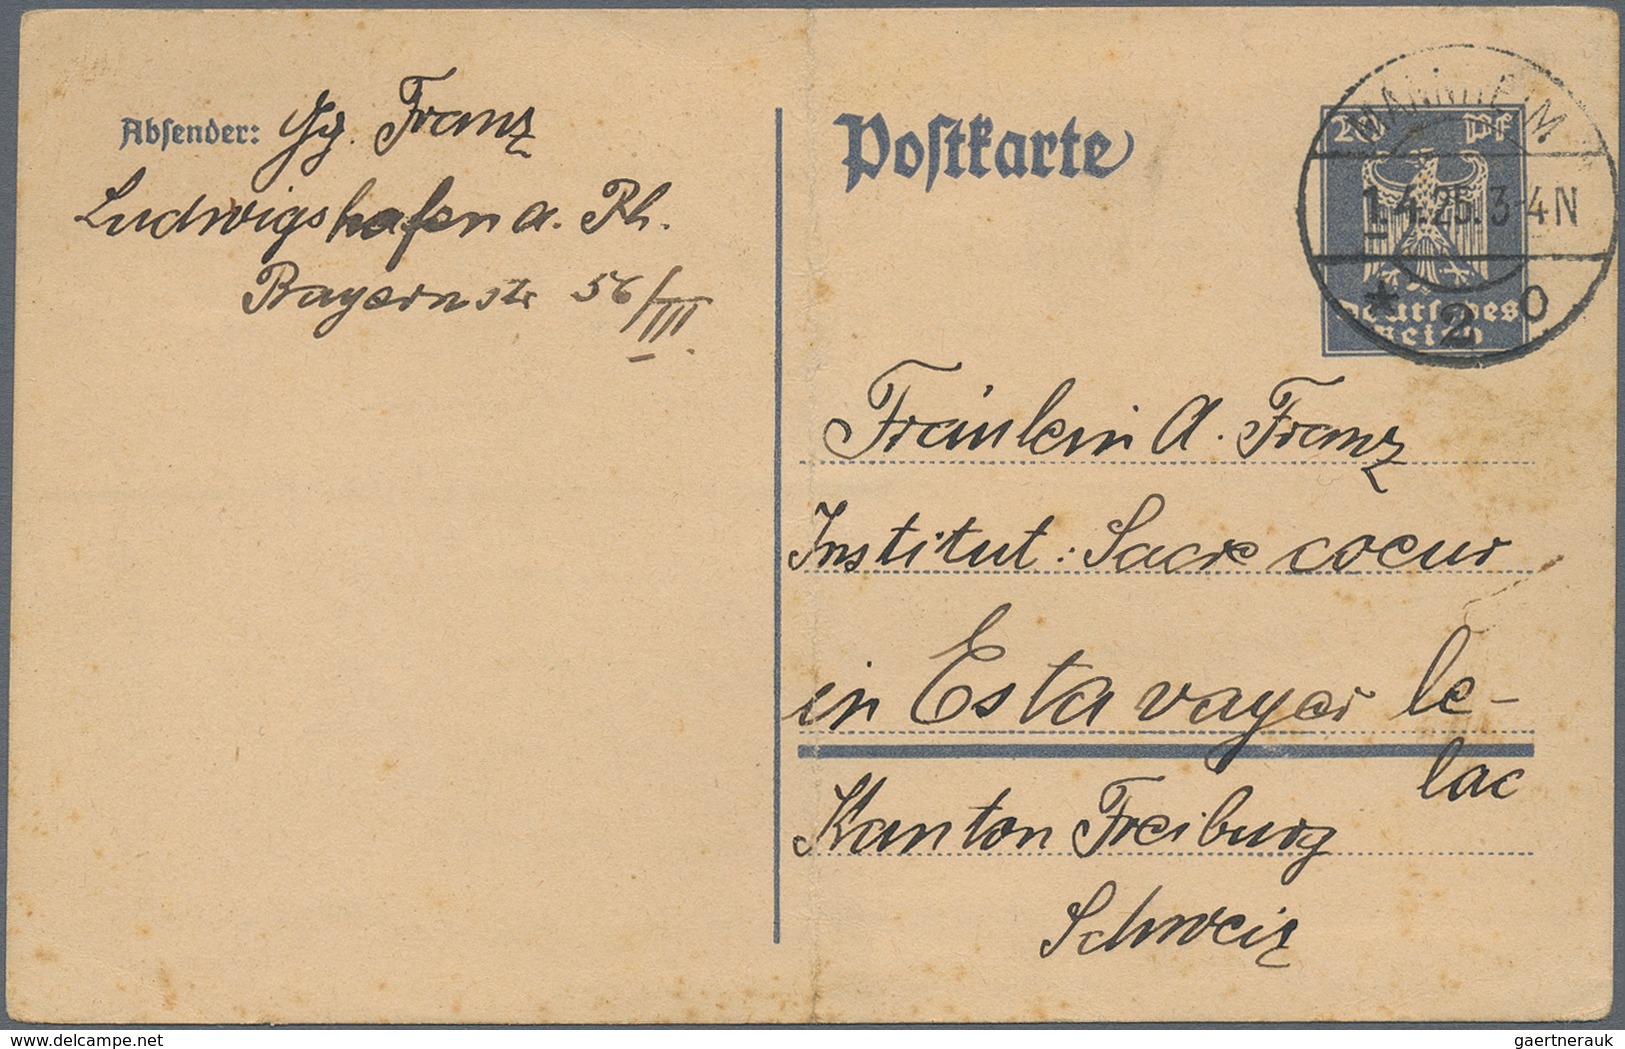 Absender: Gg. Franz
Ludwigshafen a. Rh.
Bayernstr 56/III.
Postkarte
MANNHEIM
20 Pf
1.4.25.3-4N
* 2 o
Deutsches
Reich
Fräulein A. Franz
Institut: Sacre coeur
in Estavayer le-
lac
Kanton Freiburg
Schweiz
www.delcampe.net
gaertnerauk